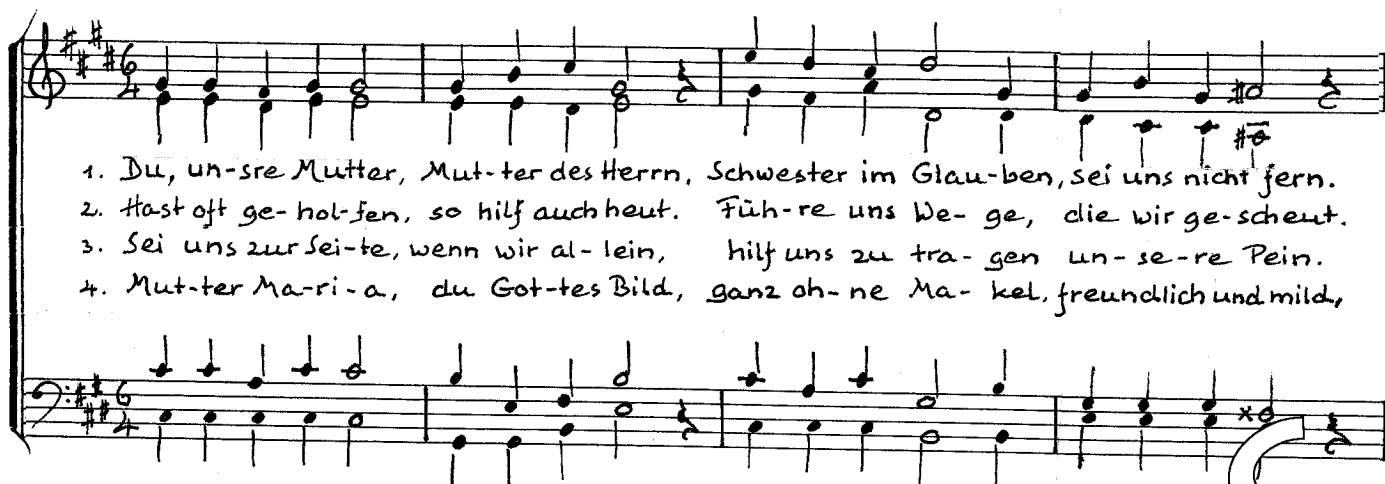 6
4
1. Du, un-sre Mutter, Mut-ter des Herrn, Schwester im Glau-ben, sei uns nicht fern.
2. Hast oft ge-hol-fen, so hilf auch heut. Füh-re uns We-ge, die wir ge-scheut.
3. Sei uns zur Sei-te, wenn wir al-lein, hilf uns zu tra-gen un-se-re Pein.
4. Mut-ter Ma-ri-a, du Got-tes Bild, ganz oh-ne Ma-kel, freundlich und mild,
6
4